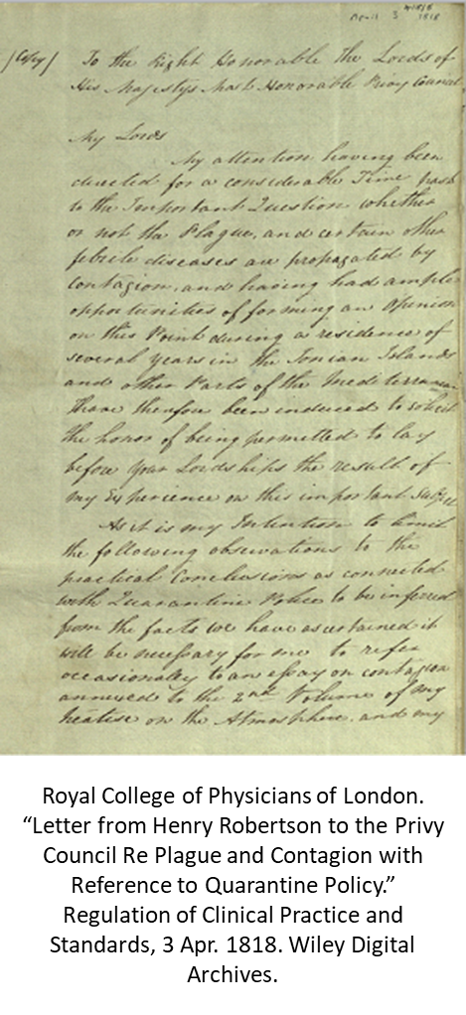 April 3 1818
/Copy/ To the Right Honorable the Lords of
His Majestys Most Honorable Privy Council
My Lords
My attention having been
directed for a considerable Time past
to the Important Question whether
or not the Plague, and certain other
febrile diseases are propagated by
contagion, and having had ample
opportunities of forming an Opinion
on this Point during a residence of
several years in the Ionian Islands
and other Parts of the Mediterranean
I have therefore been induced to solicit
the honor of being permitted to lay
before your Lordships the result of
my Experience on this important Subject
As it is my Intention to limit
the following observations to the
practical Conclusions as connected
with Quarantine Police to be inferred
from the facts we have ascertained it
will be necessary for me to refer
occasionally to an essay on contagion
annexed to the 2nd Volume of my
treatise on the Atmosphere, and my
Royal College of Physicians of London.
“Letter from Henry Robertson to the Privy
Council Re Plague and Contagion with
Reference to Quarantine Policy.”
Regulation of Clinical Practice and
Standards, 3 Apr. 1818. Wiley Digital
Archives.